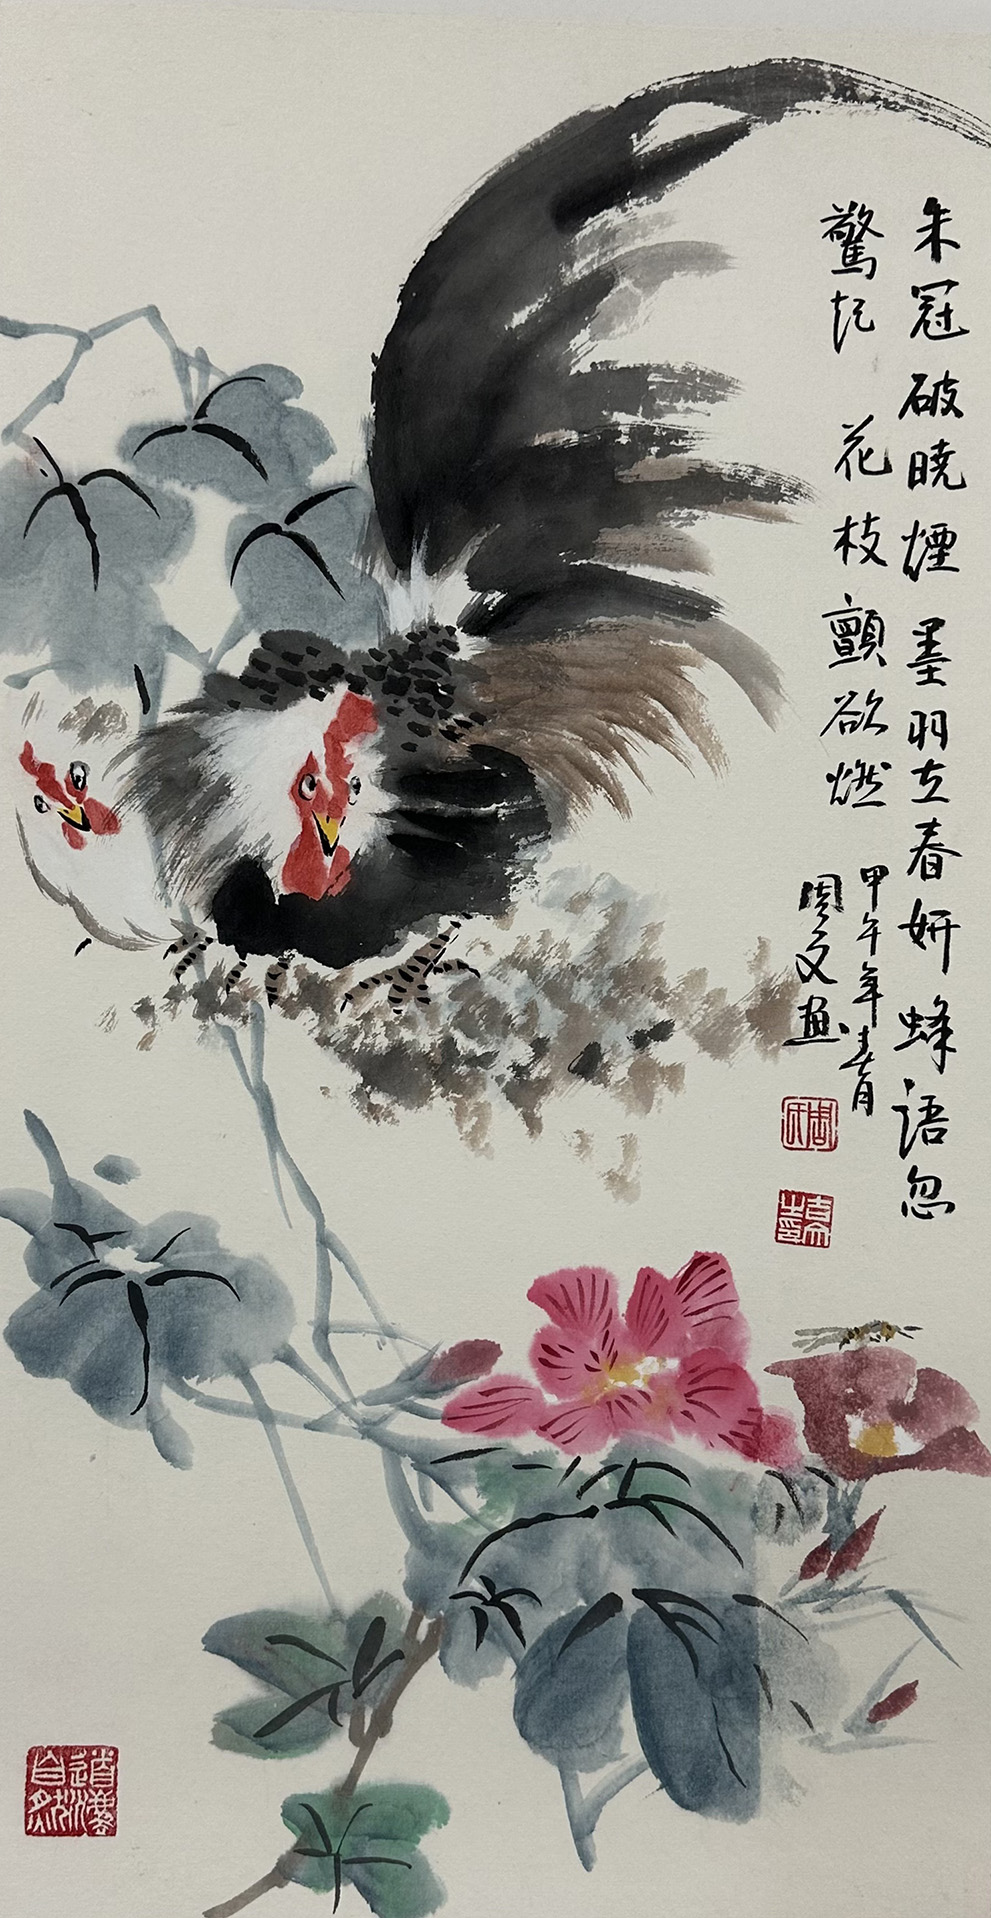 朱冠破曉煙墨羽立春妍蜂語忽
驚起花枝顫欲燃
甲午年春月
周文畫
道灋自然